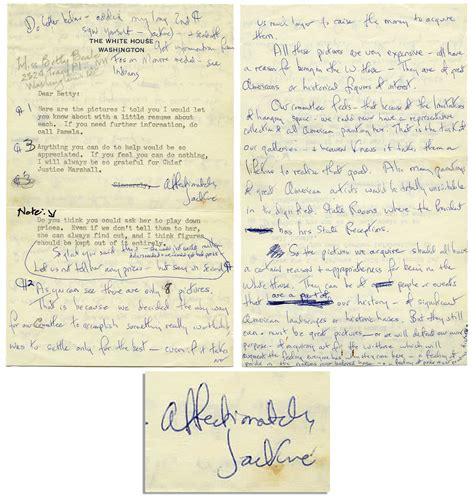 Do letter below - added my long 2nd ¶
sign yourself
THE WHITE HOUSE
WASHINGTON
get information
Miss Betty
2529
Washington
see
Dear Betty:
¶ 1 Here are the pictures I told you I would let
you know about with a little resume about
each. If you need further information, do
call Pamela.
¶ 3 Anything you can do to help would be so
appreciated. If you feel you can do nothing,
I will always be grateful for Chief
Justice Marshall.
Sincerely,
Affectionately
Jackie
Note:
Do you think you could ask her to play down
prices. Even if we don't tell them to her,
she can always find out, and I think figures
should be kept out of it entirely.
Let us not tell her any prices - but say in second ¶
¶2 As you can see there are only 8 pictures.
This is because we decided the only way
for our Committee to accomplish something really worthwhile
was to settle only for the best - even if it takes
us much longer to raise the money to acquire
them.
All these pictures are very expensive - all have
a reason for being in the W. House - They are of great
Americans or historical figures & interest.
Our committee feels - that because of the limitations
of hanging space - we could never have a representative
collection of all American painting here. That is the task of
our galleries - & heaven knows it takes them a
lifetime to realize that goal. Also many paintings
of great American artists would be totally unsuitable
in the dignified State Rooms where the President
has his State Receptions.
So the pictures we acquire - should all have
a certain reason & appropriateness for being in the
White House. They can be of people or events
that are a part of our history - of significant
American landscapes or historic houses. But they still
must be great pictures - or we will defeat our
purpose - of acquiring art for the W. House which will
augment the feeling everyone has when they come here - a feeling of
pride in
Affectionately
Jackie